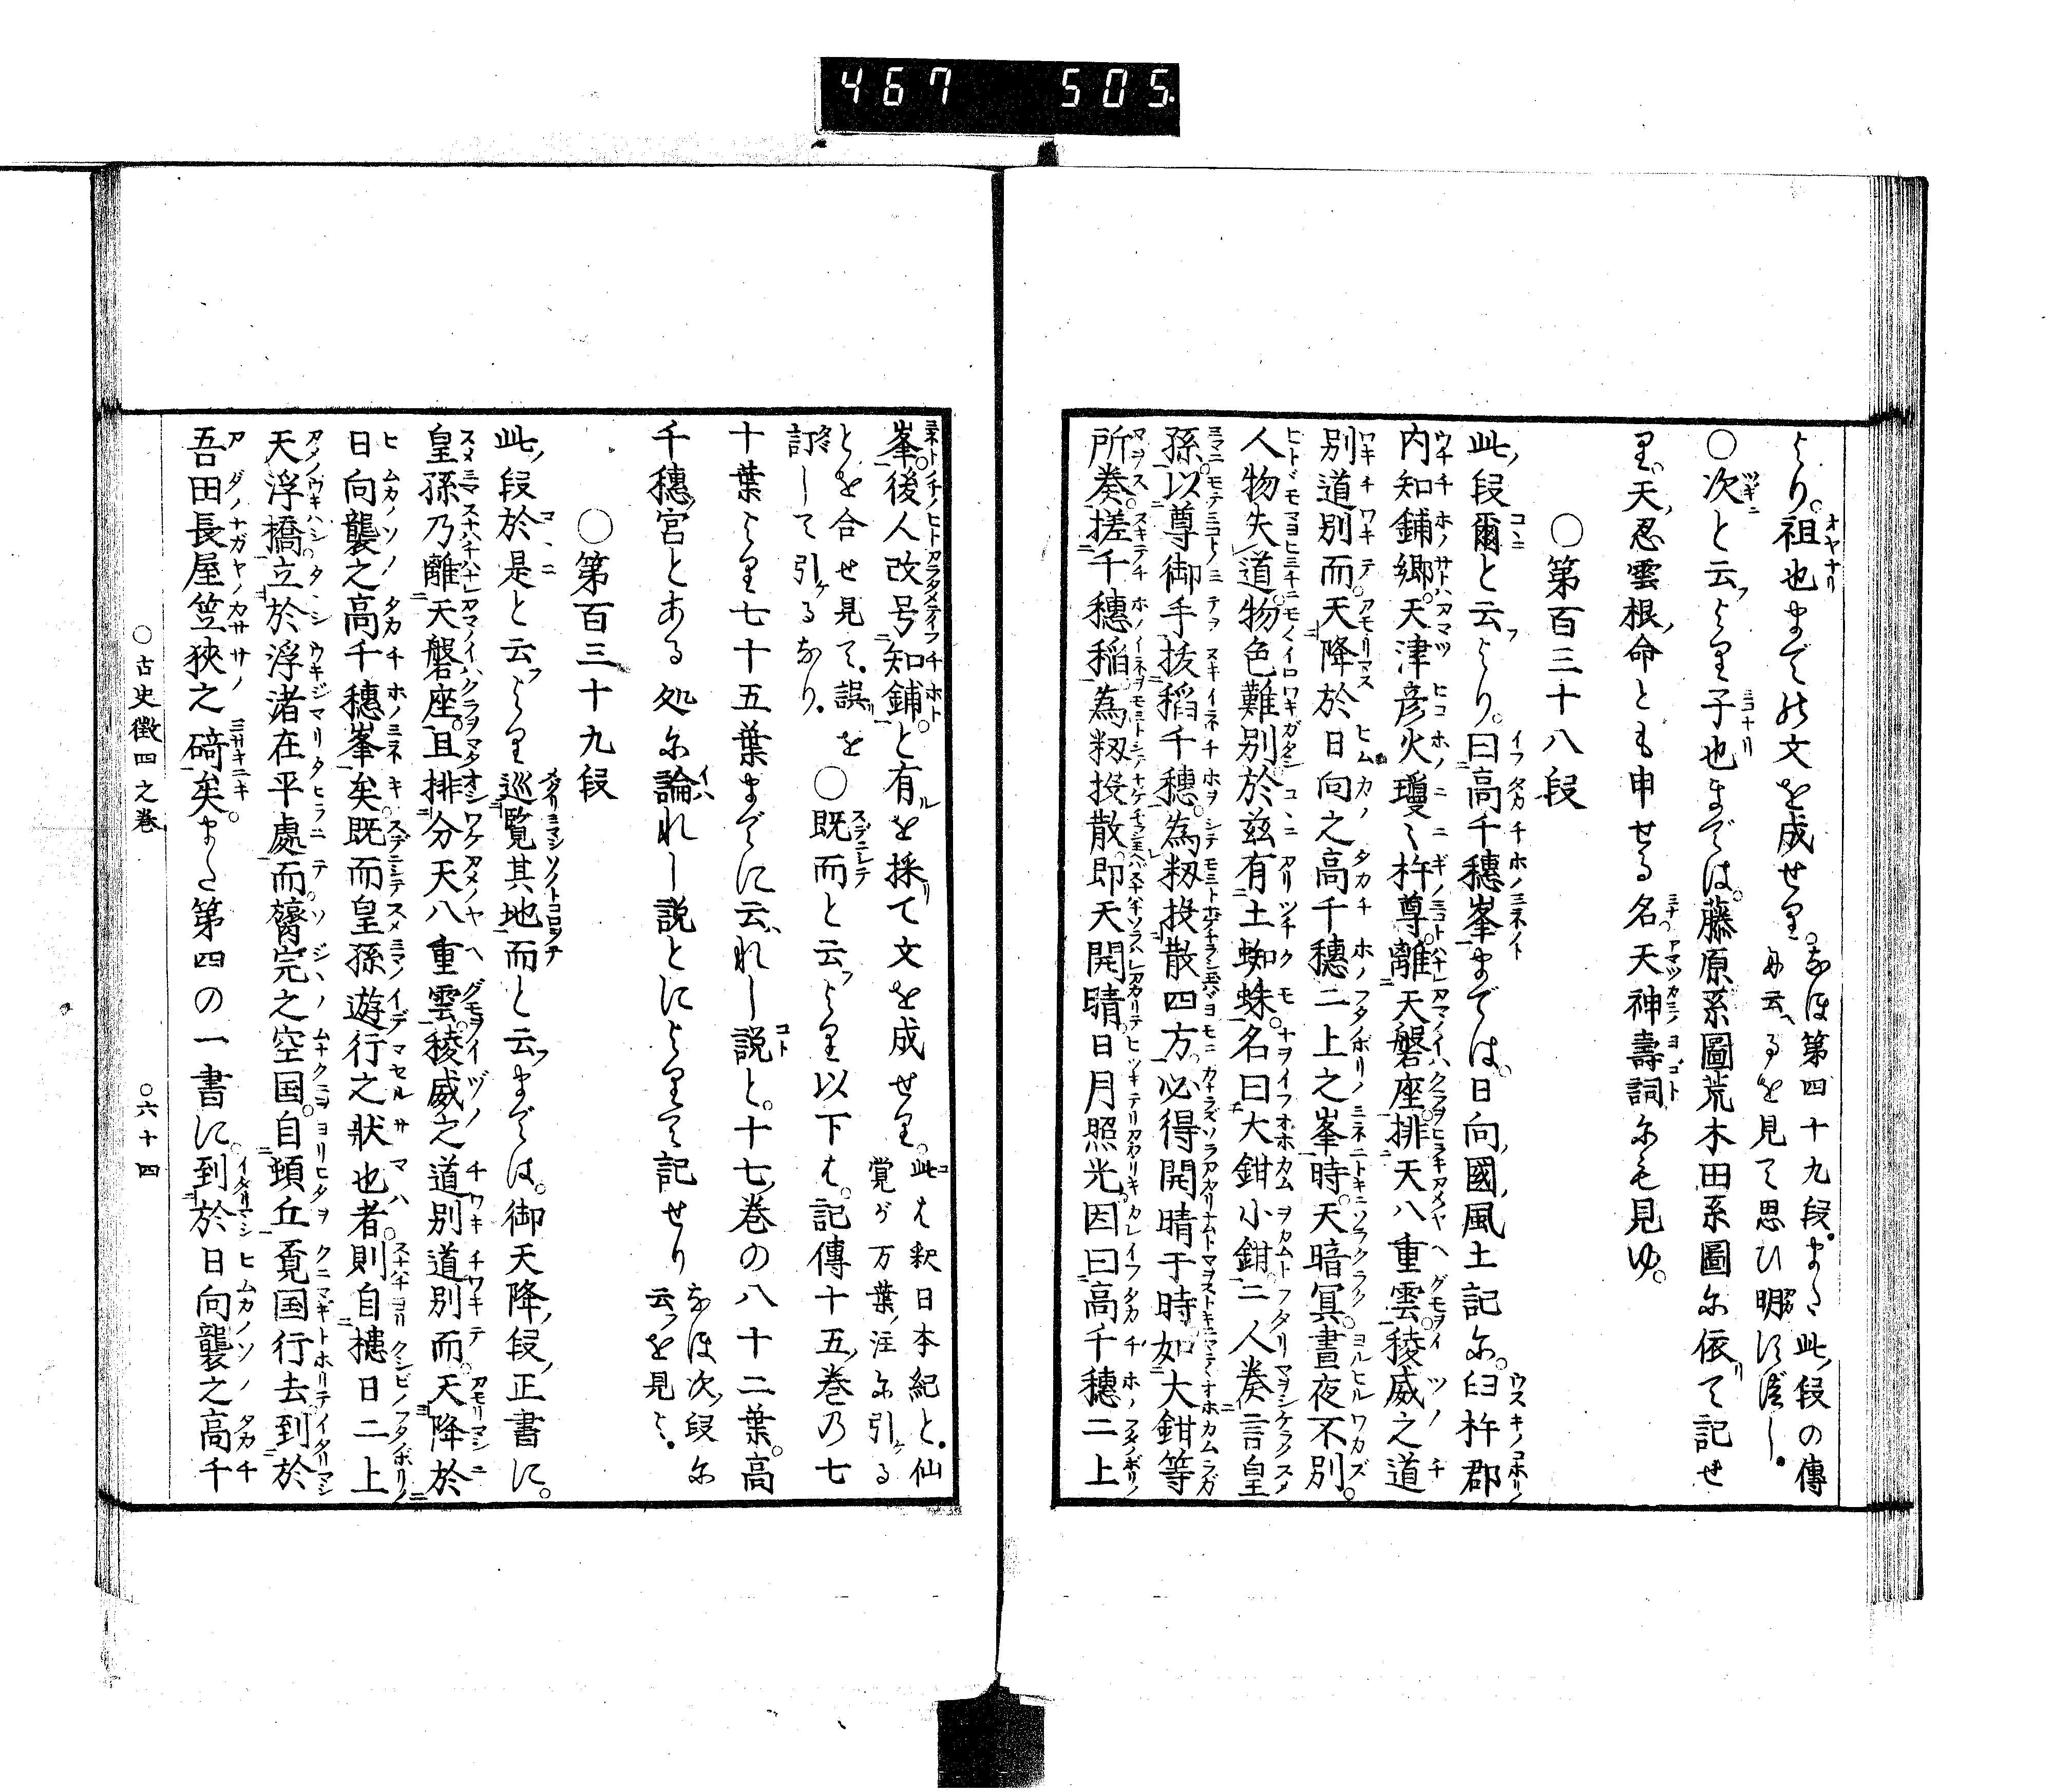 467 505
より。祖也までの文を成せり。なほ第四十九段。また此段の傳
に云へるを見て思ひ明にすべし。
○次と云より子也までは。藤原系圖荒木田系圖に依りて記せ
り。天忍雲根命とも申せる名。天神壽詞にも見ゆ。
○第百三十八段
此段爾と云より。曰高千穗峯までは。日向國風土記に。臼杵郡
内知鋪郷。天津彦火瓊々杵尊。離天磐座。排天八重雲。稜威之道
別道別而。天降於日向之高千穗二上之峯。時天暗冥。晝夜不別。
人物失道。物色難別。於茲有土蜘蛛。名曰大鉗小鉗。二人奏言皇
孫。以尊御手抜稻千穗。為籾投散四方。必得開晴。于時如大鉗等
所奏。搓千穗稻。為籾投散。即天開晴。日月照光。因曰高千穗二上
峯。後人改号知鋪。と有るを採りて文を成せり。此は釈日本紀と。仙
覚が万葉注に引ける
とを合せ見て。誤りを
訂して引けるなり。○既而と云より以下は。記傳十五巻の七
十葉より七十五葉までに云はれし説と。十七巻の八十二葉。高
千穗宮とある処に論はれし説とによりて記せり なほ次段に
云ふを見よ。
○第百三十九段
此段於是と云より巡覧其地而と云までは。御天降段正書に。
皇孫乃離天磐座。且排分天八重雲。稜威之道別道別而。天降於
日向襲之高千穗峯矣。既而皇孫遊行之狀也者。則自槵日二上
天浮橋。立於浮渚在平處。而膂宍之空国。自頓丘覔国行去。到於
吾田長屋笠狹之碕矣。また第四の一書に。到於日向襲之高千
○古史徴四之巻 ○六十四